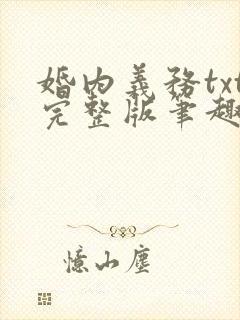 婚内義務txt
完整版筆趣
憶小塵